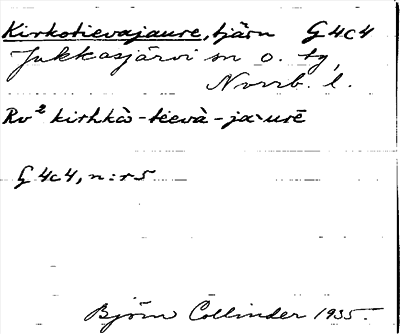 Kirkotievajaure, tjärn G 4c4
Jukkasjärvi sn o. tg,
Norrb. l.
Rv² kirhkà-tievà-ja·urē
G 4c4, n:r 5
Björn Collinder 1935.